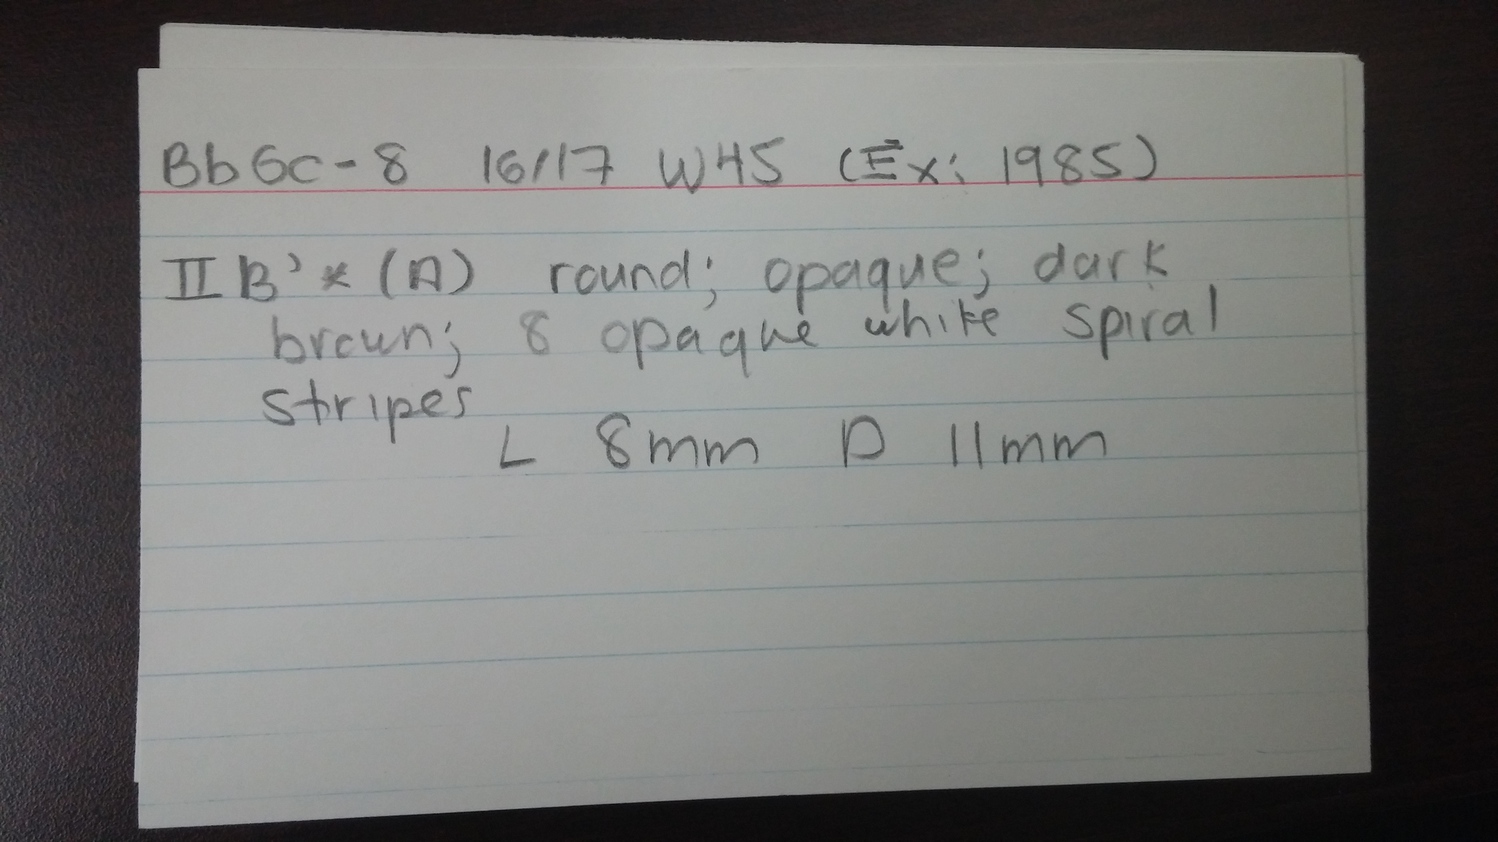 Bb Gc-8 16/17 WHS (Ex; 1985)
II B' * (A) round; opaque; dark
brown; 8 opaque white spiral
stripes
L 8mm D 11mm